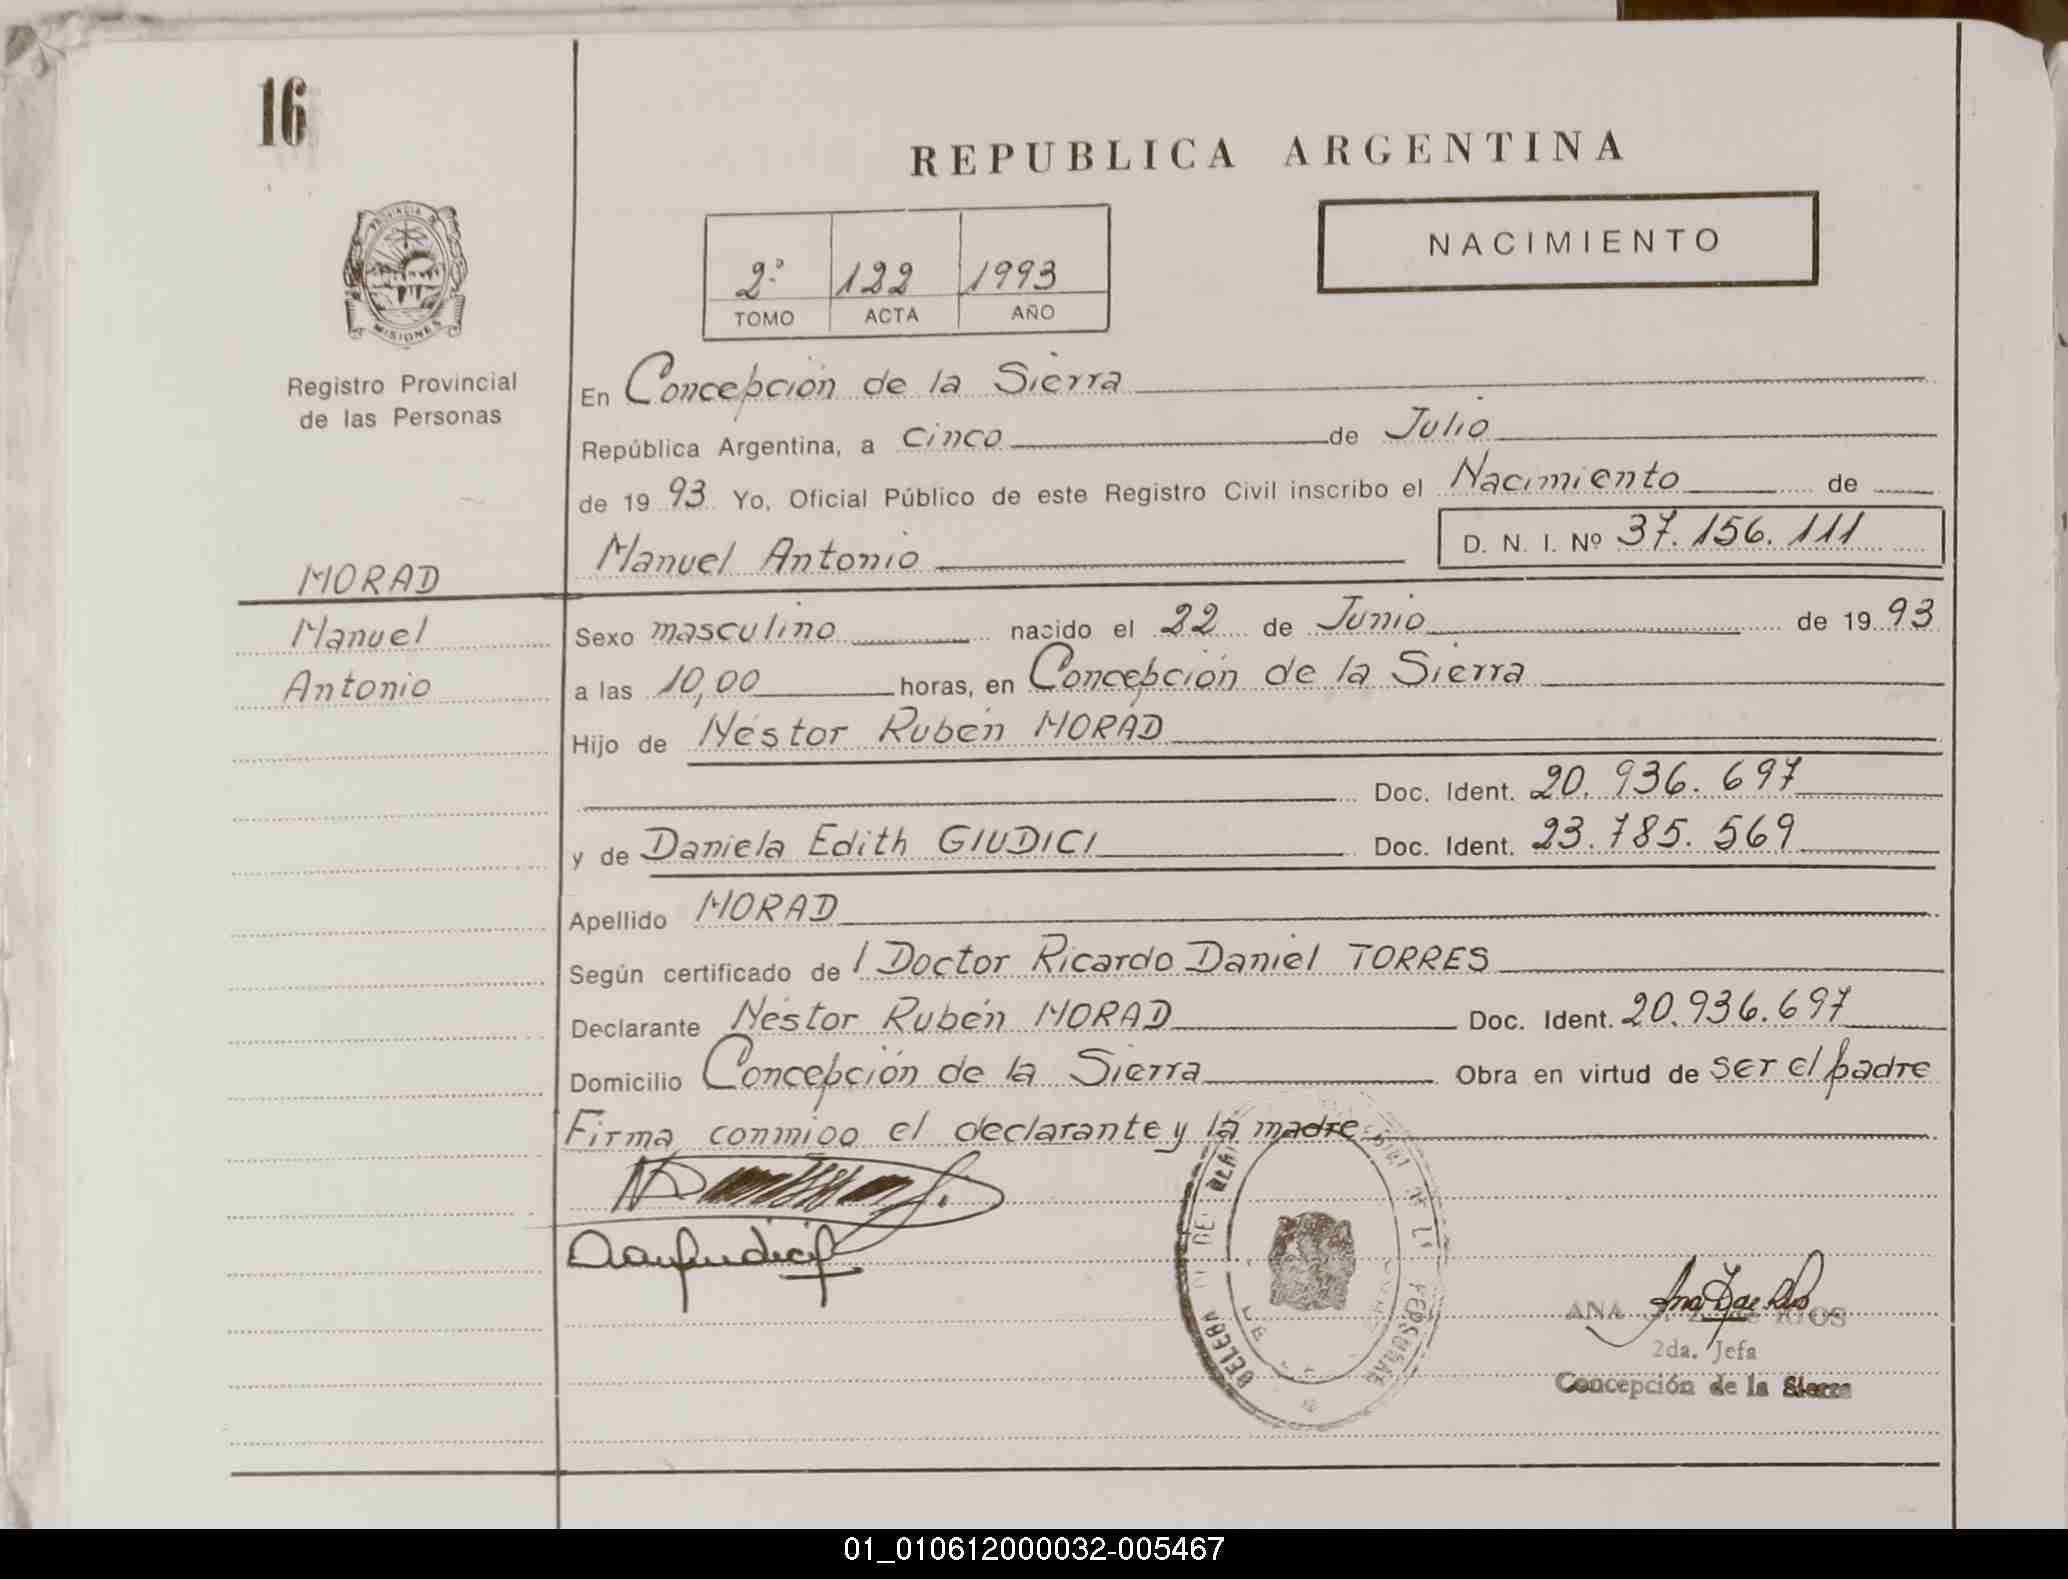 16
REPUBLICA ARGENTINA
NACIMIENTO
2º 122 1993
TOMO ACTA AÑO
PROVINCIA DE
MISIONES
Registro Provincial
de las Personas
En Concepción de la Sierra
República Argentina, a cinco de Julio
de 1993 Yo, Oficial Público de este Registro Civil inscribo el Nacimiento de
Manuel Antonio D. N. I. Nº 37.156.111
MORAD
Manuel
Antonio
Sexo masculino nacido el 22 de Junio de 1993
a las 10,00 horas, en Concepción de la Sierra
Hijo de Néstor Rubén MORAD
Doc. Ident. 20.936.697
y de Daniela Edith GIUDICI Doc. Ident. 23.785.569
Apellido MORAD
Según certificado de l Doctor Ricardo Daniel TORRES
Declarante Néstor Rubén MORAD Doc. Ident. 20.936.697
Domicilio Concepción de la Sierra Obra en virtud de ser el padre
Firma conmigo el declarante y la madre
ANA RIOS
2da. Jefa
Concepción de la Sierra
01_010612000032-005467